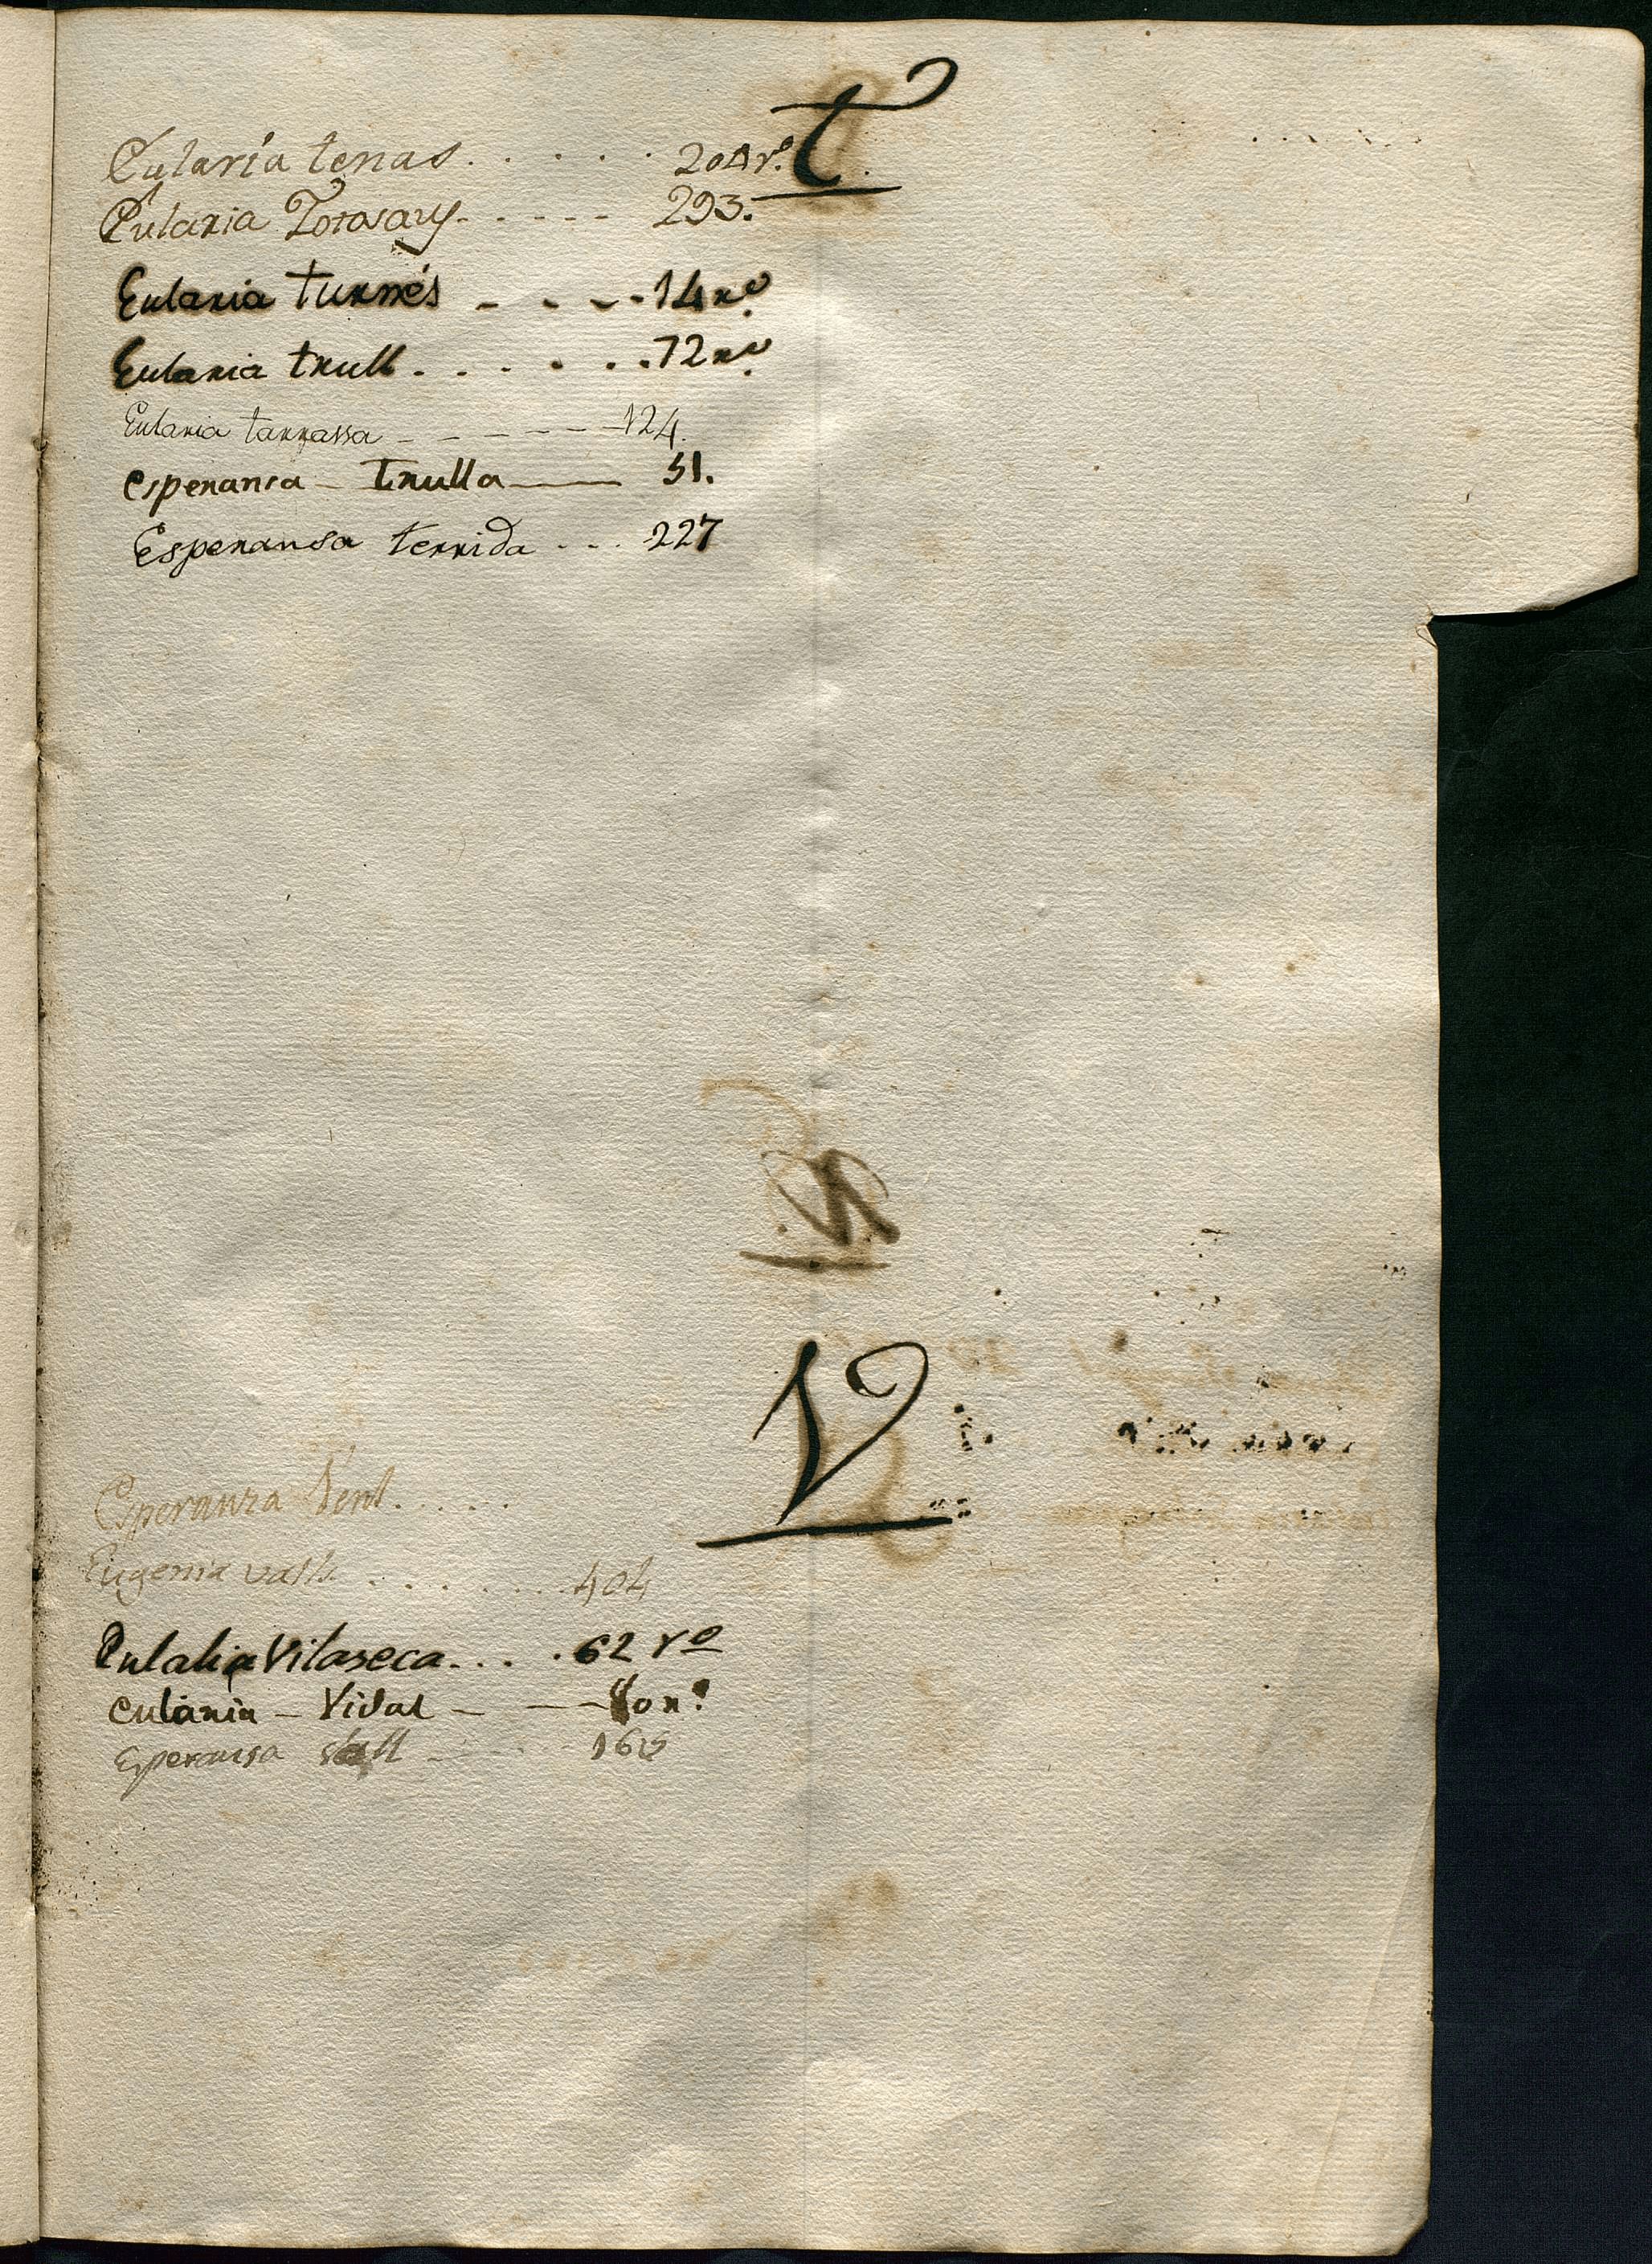 t
Eularia tenas . . . . . 204 rº.
Eularia - - - - - 293.
Eularia turnés - - - - 14 rº
Eularia trull . . . . . . 72 rº
Eularia tarrassa - - - - - - 124.
esperansa - Trulla —— 51.
Esperansa terrida - - - 227
V
Esperanza Vent . . . . .
Eugenia valls . . . . . . . 404
Eulalia Vilaseca . . . . 62 rº
eularia - Vidal - — rº
Esperansa